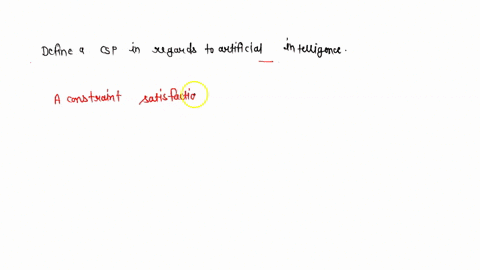 Define a CSP in regards to artificial intelligence.
A constraint satisfactio